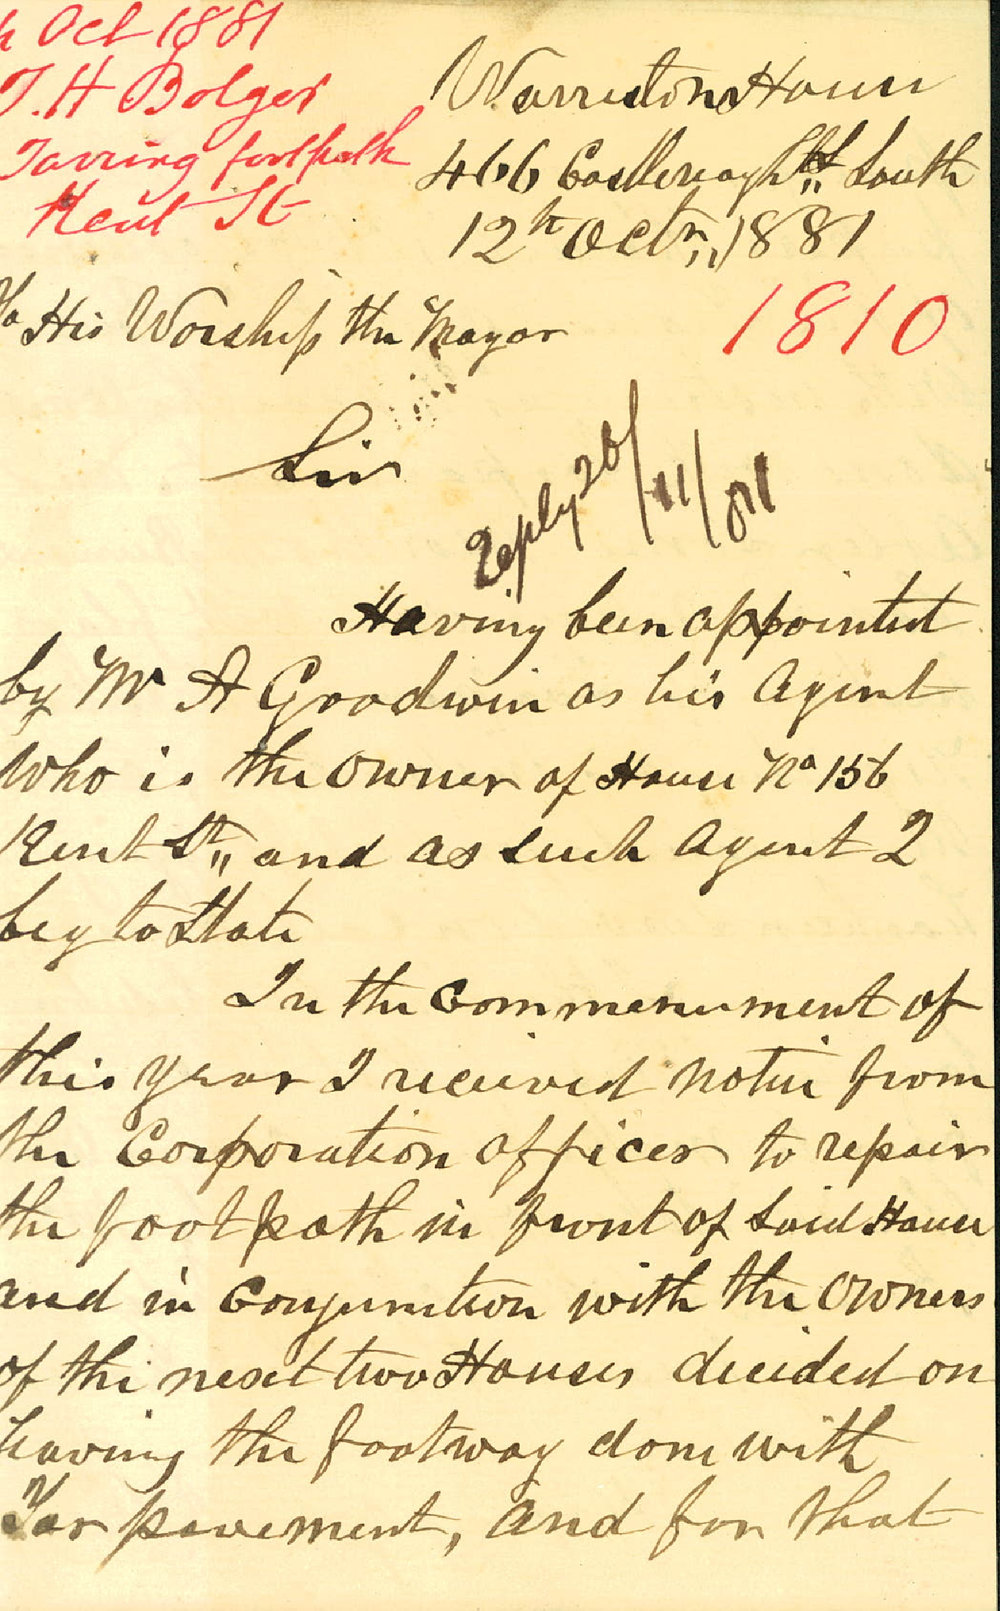 h Oct 1881
T. H Bolger
Tarring footpath
Kent St
Warriston House
466 Castlereagh St South
12th Octr, 1881
To His Worship the Mayor
1810
Sir
Reply 26/11/81
Having been appointed
by Mr A Goodwin as his Agent
Who is the Owner of House No 156
Kent St, and as such Agent I
beg to State
In the Commencement of
this year I received notice from
the Corporation officer to repair
the footpath in front of said House
and in Conjunction with the Owners
of the next two Houses decided on
having the footway done with
Tar pavement, and for that